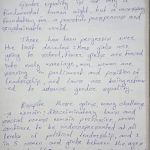 Gender equality is not only a
fundamental human right, but a necessary
foundation for a peaceful, prosperous and
sustainable world.
There has been progress over
the last decades: More girls are
going to school, fewer girls are forced
into early marriage, more women are
serving in parliament and positions of
leadership, and laws are being
to advance gender equality.
Despite these gains many challenges
remain: discriminatory laws and
social norms remain pervasive, women
continue to be underrepresented at all
levels of political leadership, and 1
in 5 women and girls between the ages